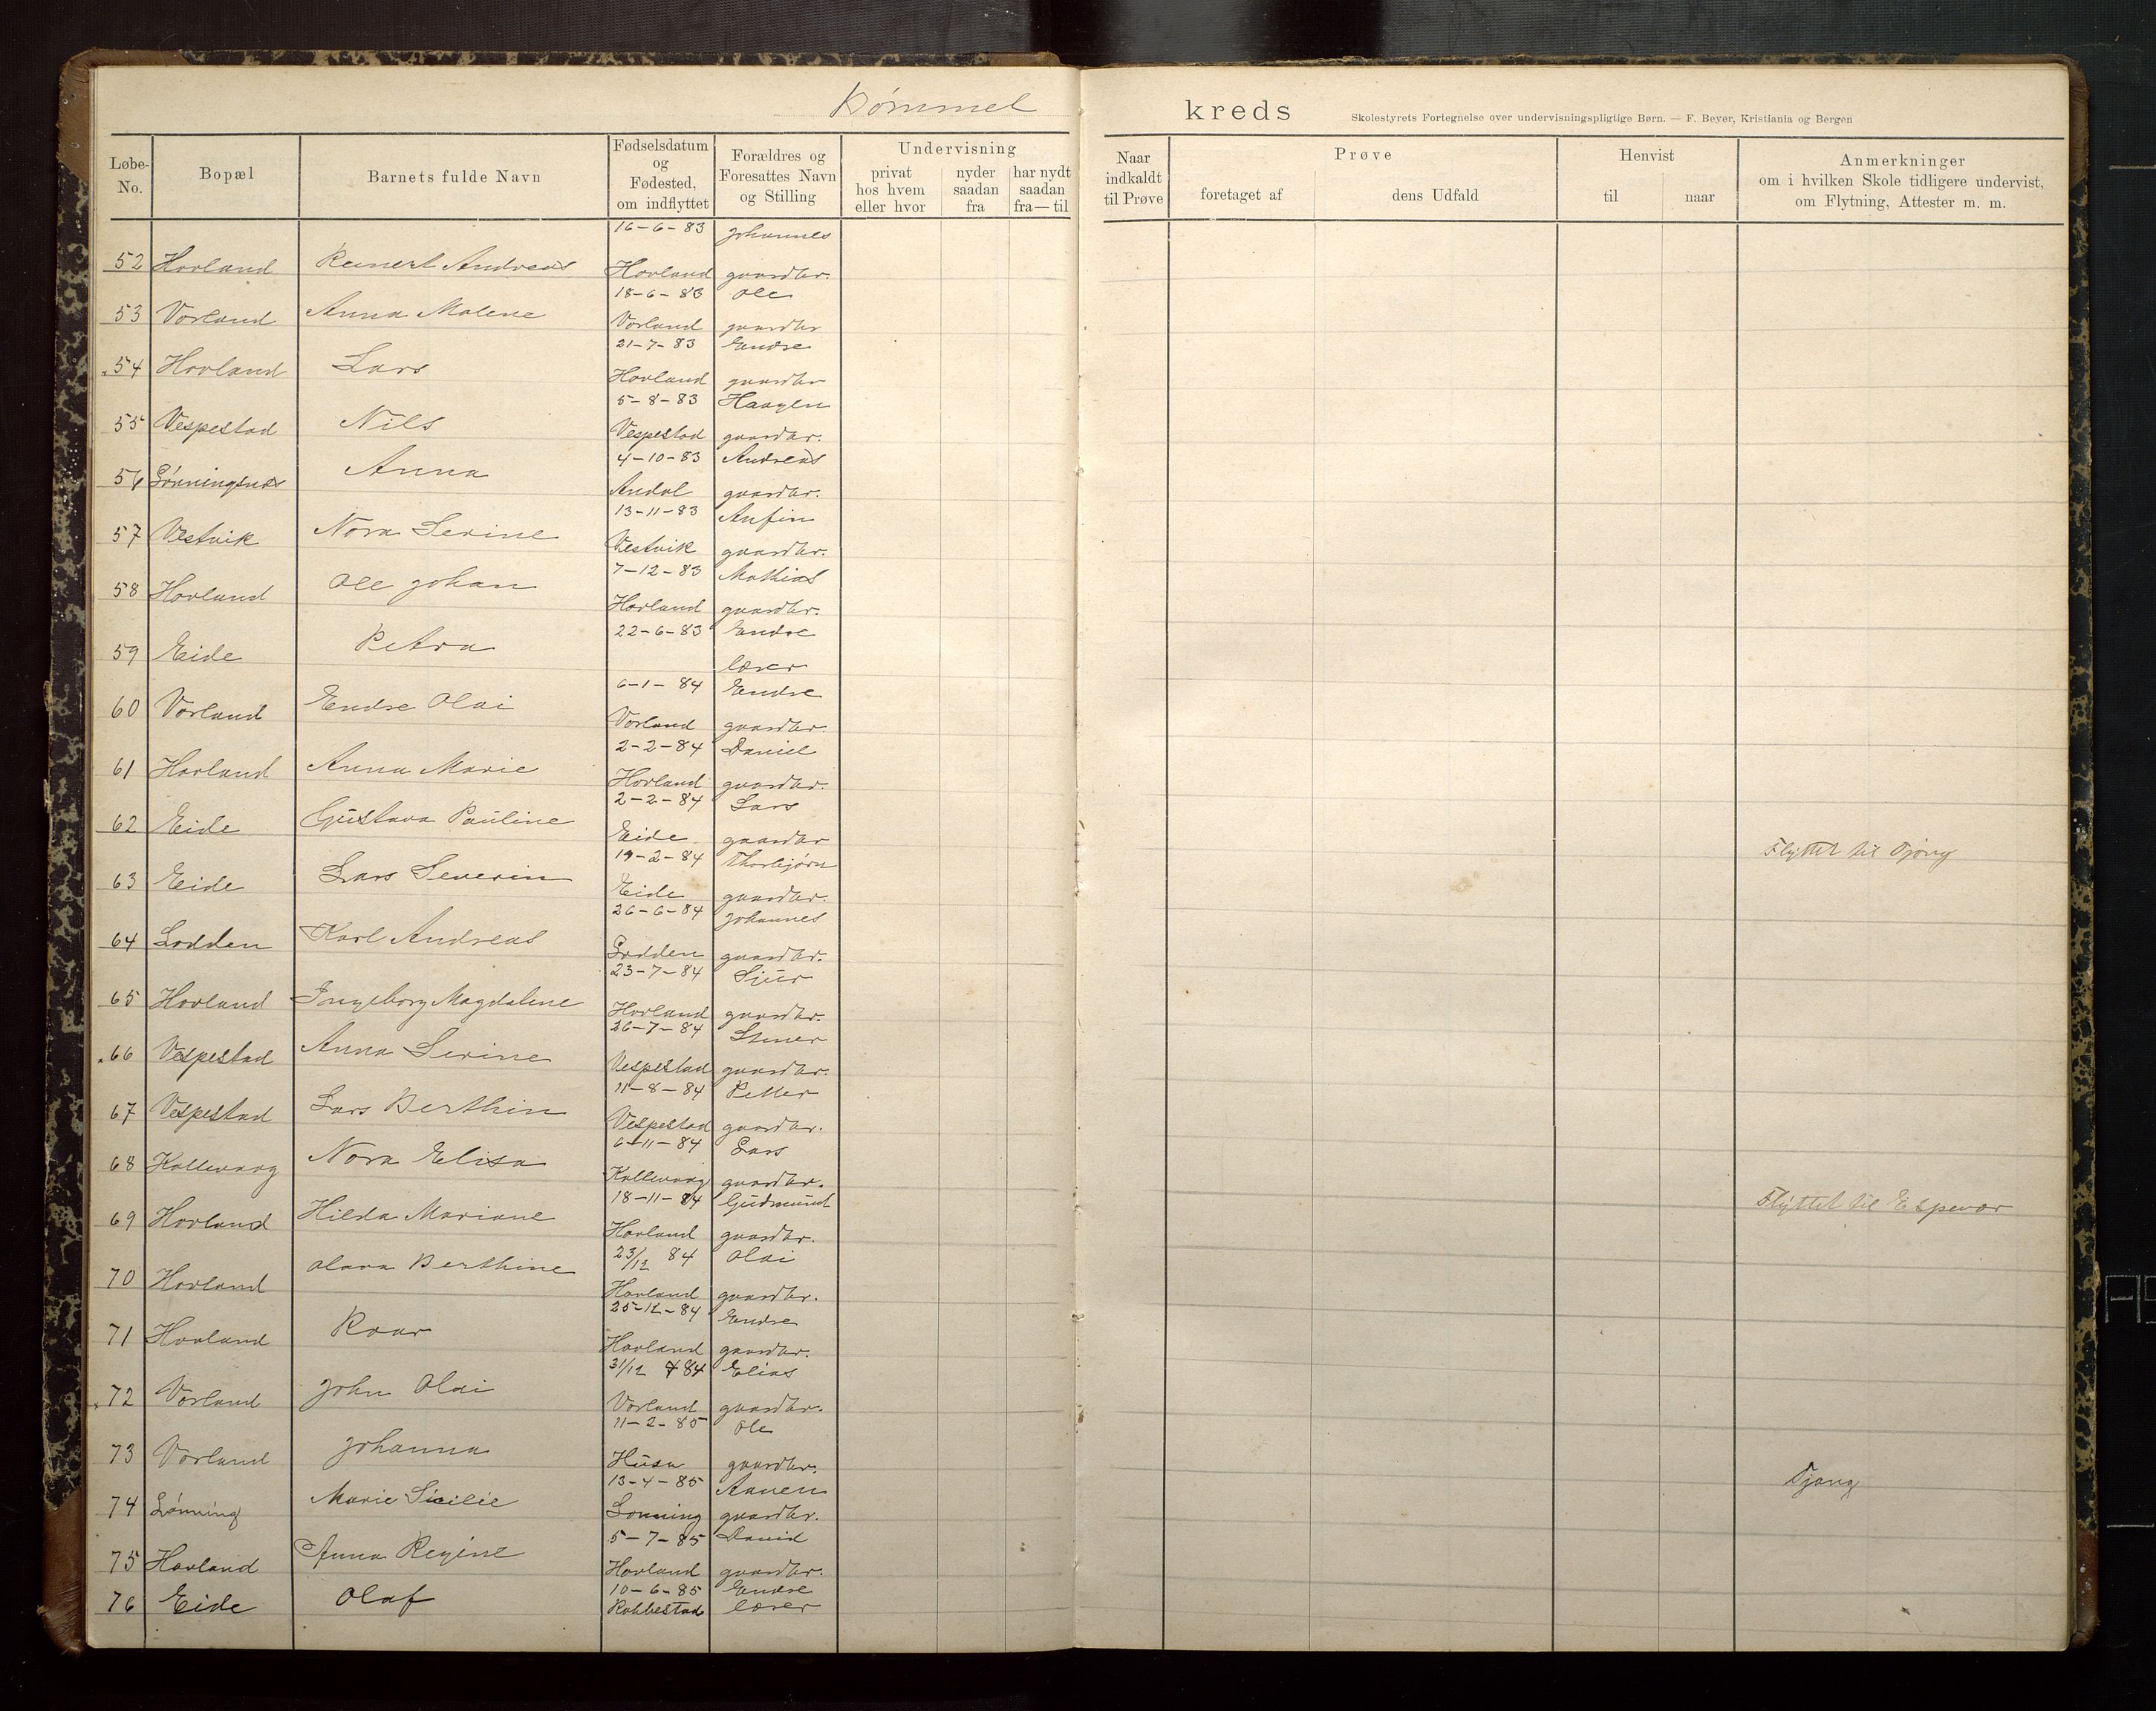 Bømmel kreds
Skolestyrets Fortegnelse over undervisningspligtige Børn. — F. Beyer, Kristiania og Bergen
Løbe-No. Bopæl Barnets fulde Navn Fødselsdatum og Fødested, om indflyttet Forældres og Foresattes Navn og Stilling Undervisning privat hos hvem eller hvor nyder saadan fra har nydt saadan fra — til Naar indkaldt til Prøve Prøve foretaget af dens Udfald Henvist til naar Anmerkninger om i hvilken Skole tidligere undervist, om Flytning, Attester m. m.
16-6-83 Johannes
52 Hovland Reinert Andreas Hovland gaardbr.
18-6-83 Ole
53 Vorland Anna Malene Vorland gaardbr
21-7-83 Endre
54 Hovland Lars Hovland gaardbr
5-8-83 Haagen
55 Vespestad Nils Vespestad gaardbr.
4-10-83 Andreas
56 Lønningsnes Anna Andal gaardbr.
13-11-83 Anfin
57 Vestvik Nora Serine Vestvik gaardbr.
7-12-83 Mathias
58 Hovland Ole Johan Hovland gaardbr.
22-6-83 Endre
59 Eide Petra lærer
6-1-84 Endre
60 Vorland Endre Olai Vorland gaardbr.
2-2-84 Daniel
61 Hovland Anna Marie Hovland gaardbr.
2-2-84 Lars
62 Eide Gustava Pauline Eide gaardbr Flyttet til Tjong
19-2-84 Thorbjørn
63 Eide Lars Severin Eide gaardbr.
26-6-84 Johannes
64 Lodden Karl Andreas Lodden gaardbr.
23-7-84 Sjur
65 Hovland Ingeborg Magdalene Hovland gaardbr.
26-7-84
66 Vespestad Anna Serine Vespestad gaardbr.
11-8-84 Petter
67 Vespestad Lars Berthin Vespestad gaardbr.
6-11-84 Lars
68 Kallevaag Nora Elisa Kallevaag gaardbr.
18-11-84 Gudmund Flyttet til Espevær
69 Hovland Hilda Mariane Hovland gaardbr.
23/12 84 Olai
70 Hovland Olava Berthine Hovland gaardbr.
25-12-84 Endre
71 Hovland Roar Hovland gaardbr.
31/12 84 Elias
72 Vorland John Olai Vorland gaardbr.
11-2-85 Ole
73 Vorland Johanna Husa gaardbr.
13-4-85 Aanen Tjong
74 Lønning Marie Sicilie Lønning gaardbr.
5-7-85 David
75 Hovland Anna Regine Hovland gaardbr.
10-6-85 Endre
76 Eide Olaf Rubbestad lærer